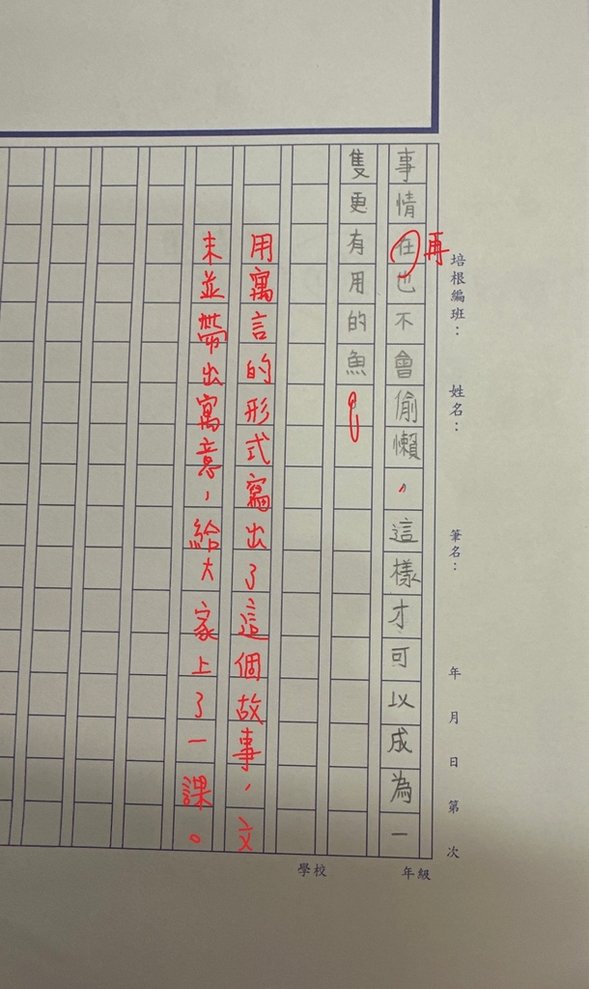 培根編班： 姓名： 筆名： 年 月 日 第 次
事情在也不會偷懶，這樣才可以成為一
再
隻更有用的魚！
用寓言的形式寫出了這個故事，文
末並帶出寓意，給大家上了一課。
學校 年級